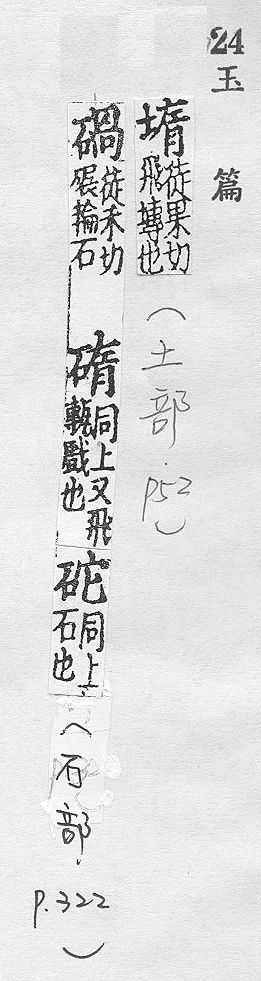 24
玉篇
墮徒果切飛塼也(土部.p52)
碢徒禾切碾輪石
𥓲同上又飛甎戲也
砣同上石也
(石部.p.322)